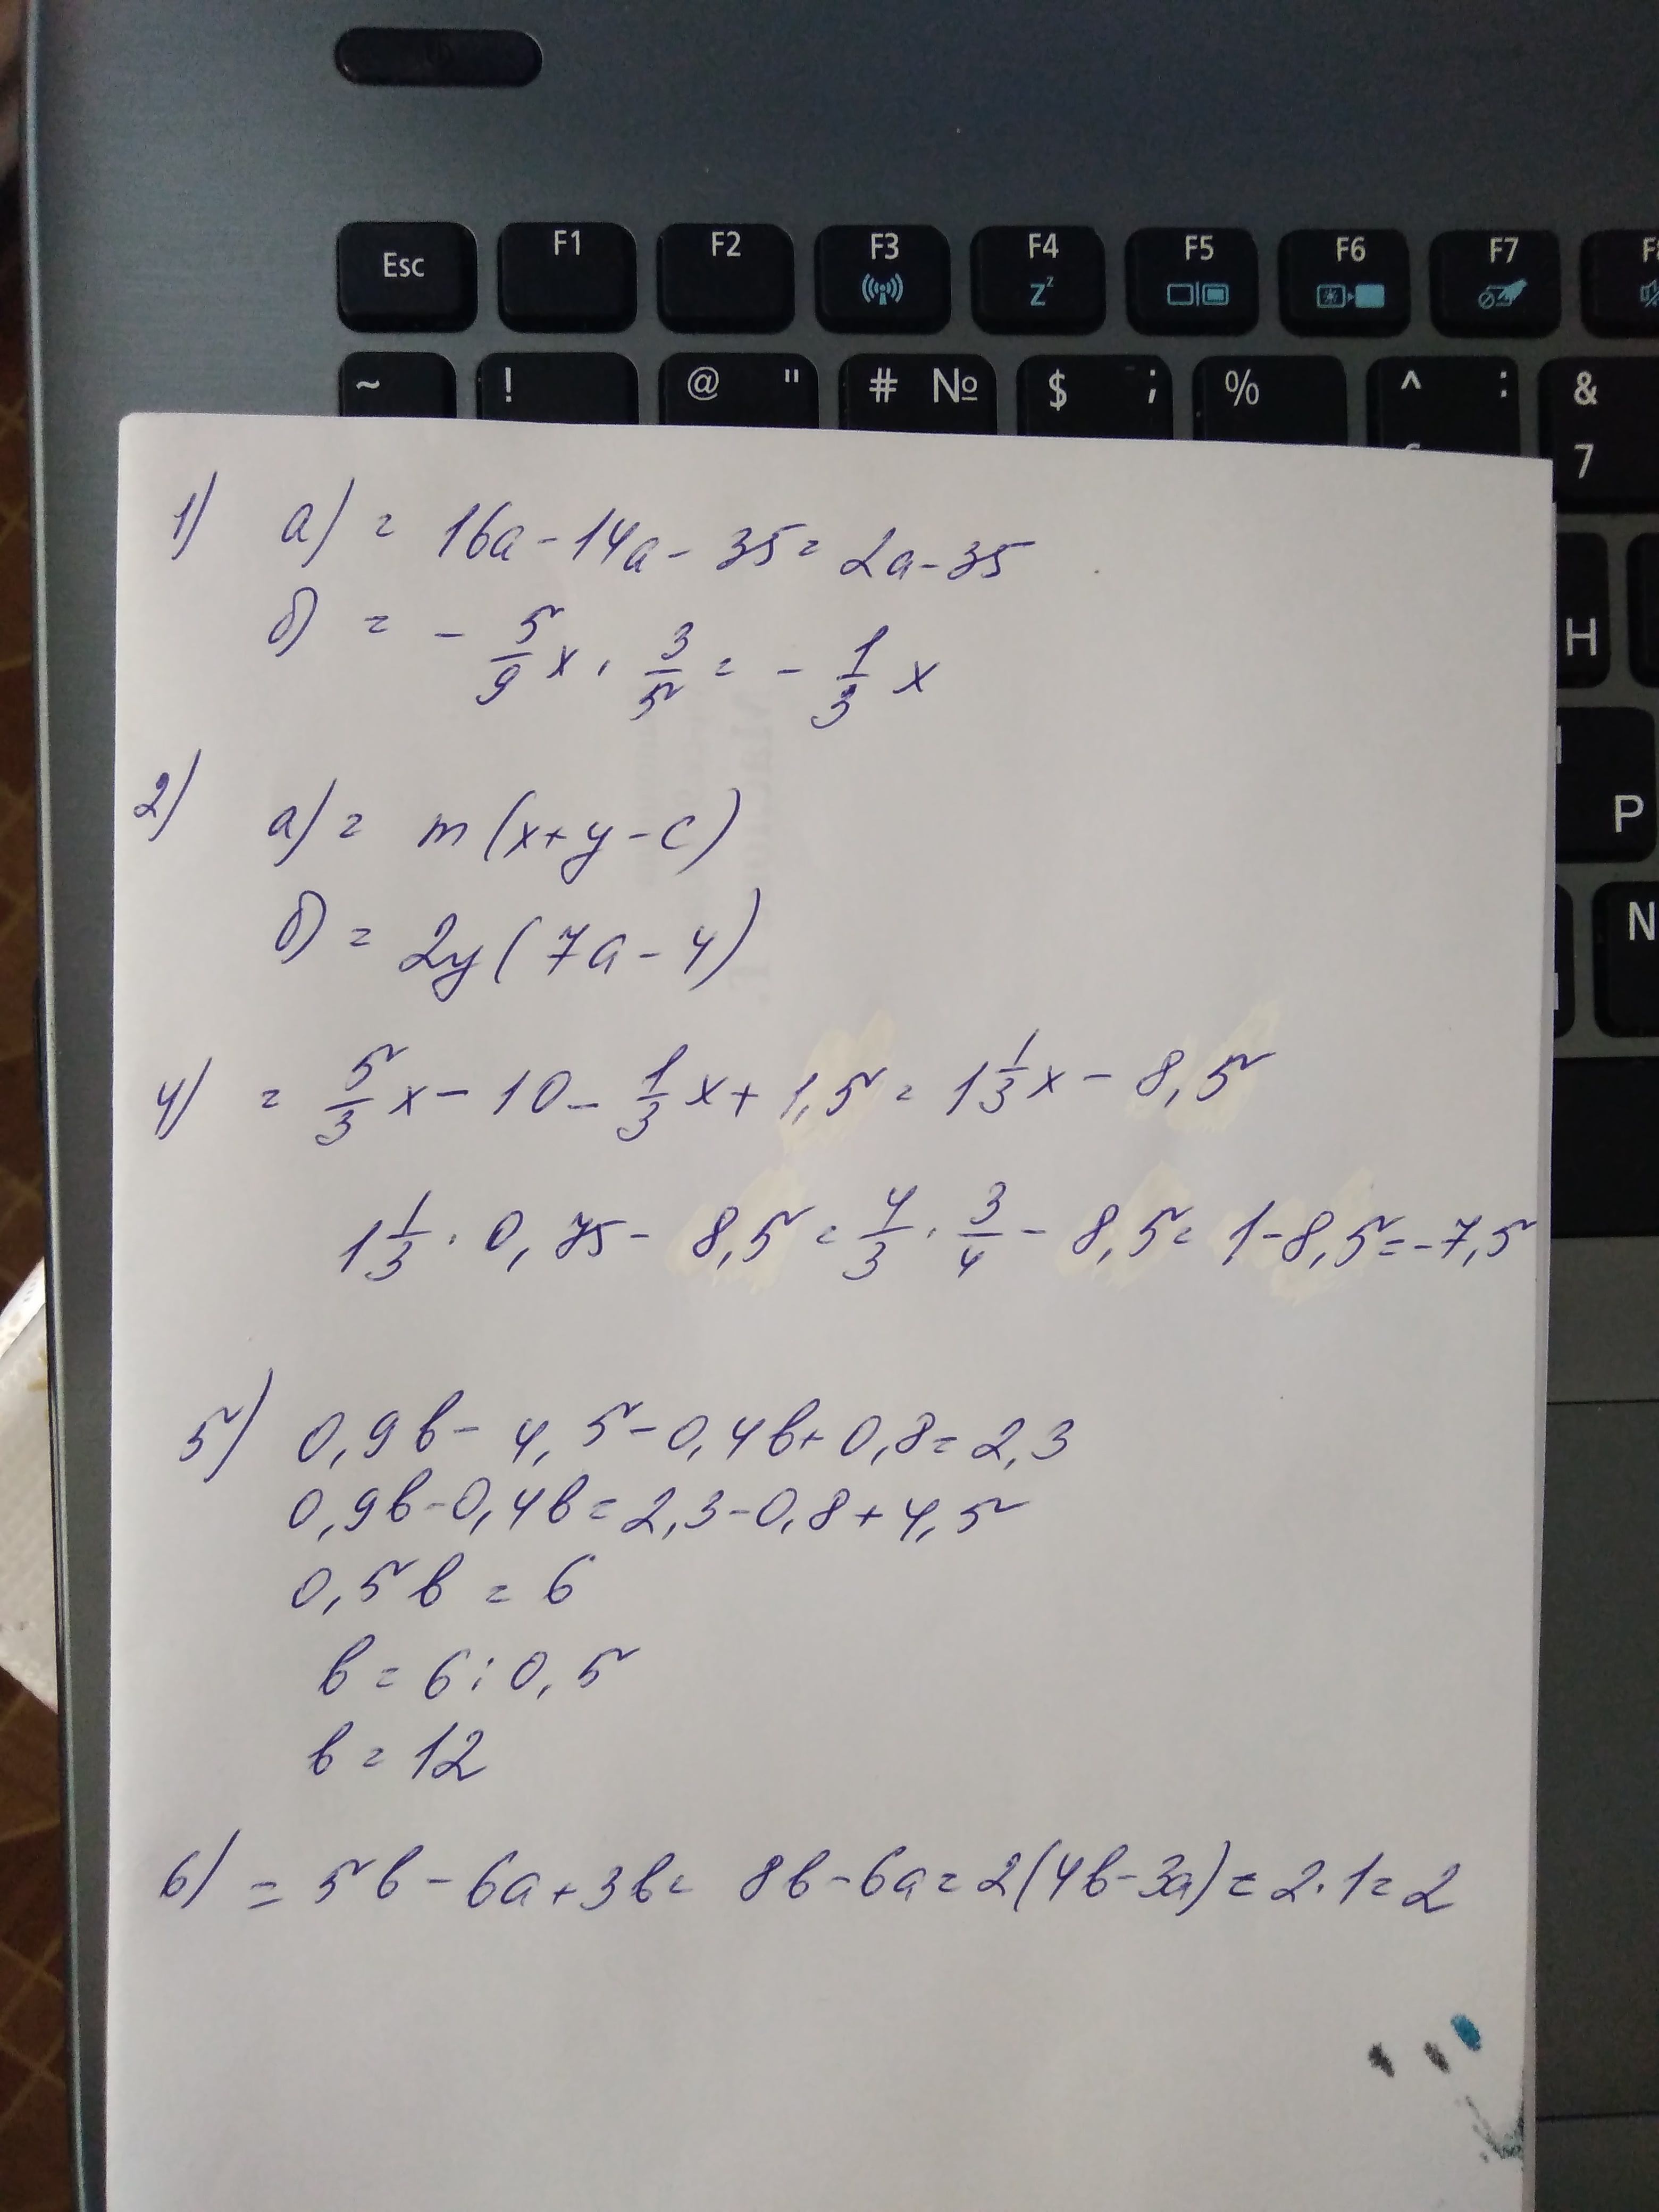 Esc F1 F2 F3 F4 F5 F6 F7
~ ! @ " # № $ ; % ^ : & 7
H
P
N
1) а) = 16a - 14a - 35 = 2a - 35
б) = - 5/9 x · 3/5 = - 1/3 x
2) а) = m(x+y-c)
б) = 2y(7a-4)
4) = 5/3 x - 10 - 1/3 x + 1,5 = 1 1/3 x - 8,5
1 1/3 · 0,75 - 8,5 = 4/3 · 3/4 - 8,5 = 1-8,5=-7,5
5) 0,9b - 4,5 - 0,4b + 0,8 = 2,3
0,9b - 0,4b = 2,3 - 0,8 + 4,5
0,5b = 6
b = 6:0,5
b = 12
6) = 5b - 6a + 3b = 8b - 6a = 2(4b-3a) = 2·1 = 2